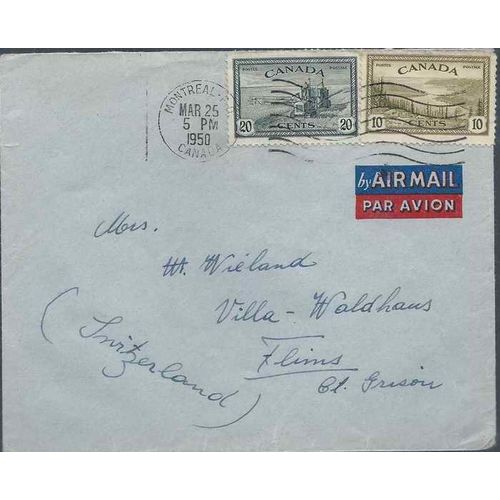 CANADA
POSTES POSTAGE
20 CENTS 20
CANADA
POSTES POSTAGE
10 CENTS 10
MONTREAL
MAR 25
5 PM
1950
CANADA
by AIR MAIL
PAR AVION
Mrs.
M. Wieland
Villa - Waldhaus
Flims
Ct. Grison
(Switzerland)